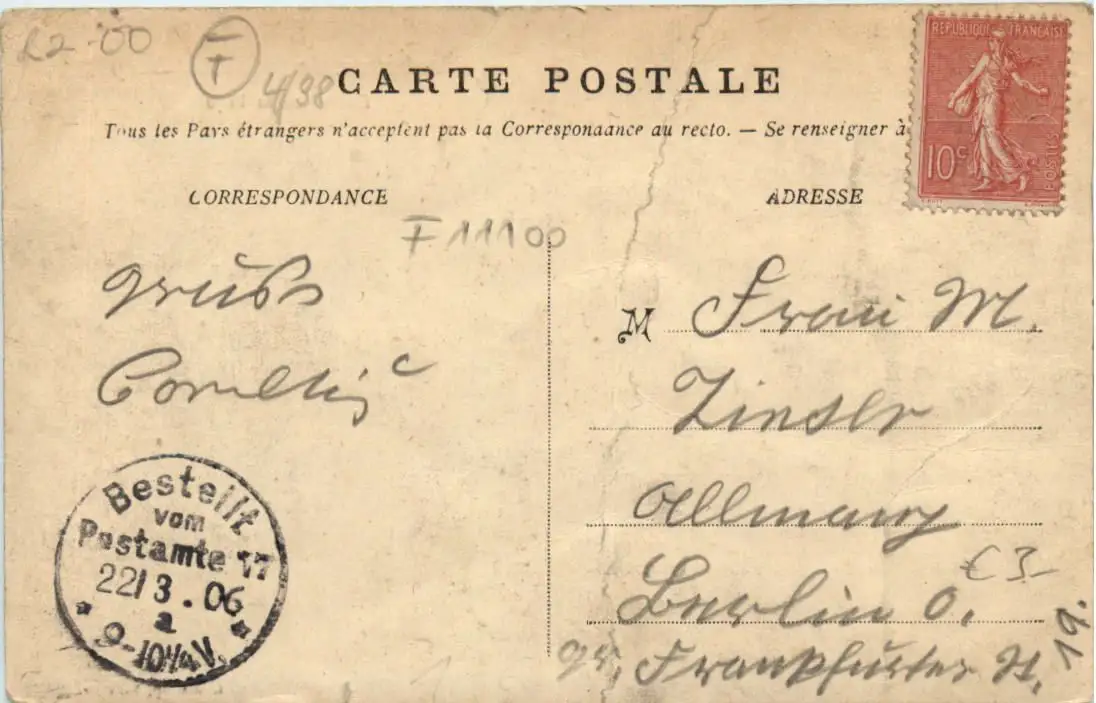 R2-00
T
4/98
CARTE POSTALE
Tous les Pays étrangers n'acceptent pas la Correspondance au recto. — Se renseigner à
RÉPUBLIQUE FRANÇAISE
10 c
POSTES
CORRESPONDANCE
ADRESSE
F 11100
Gruss
M Frau M.
Zindler
Allmany
Berlin O.
€ 3-
gr. Frankfurter St. 19.
Bestellt
vom
Postamte 17
22/3.06
a
9-10¼V.